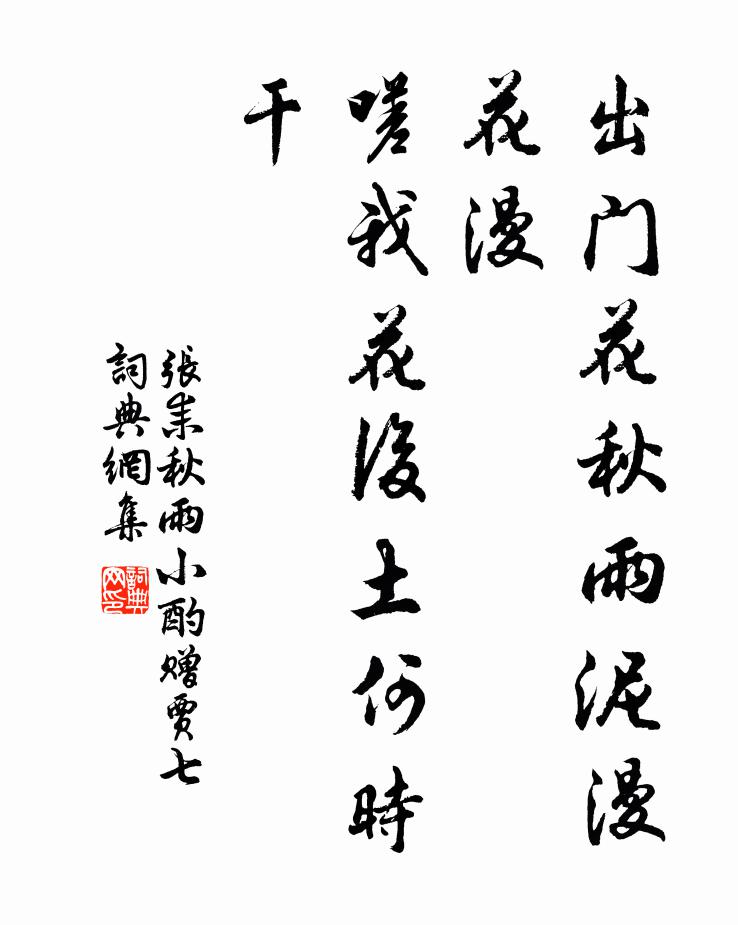 出门花秋雨泥漫
花漫
嗟我花後土何時
干
張耒秋雨小酌贈賈七
詞典網集
詞典网印